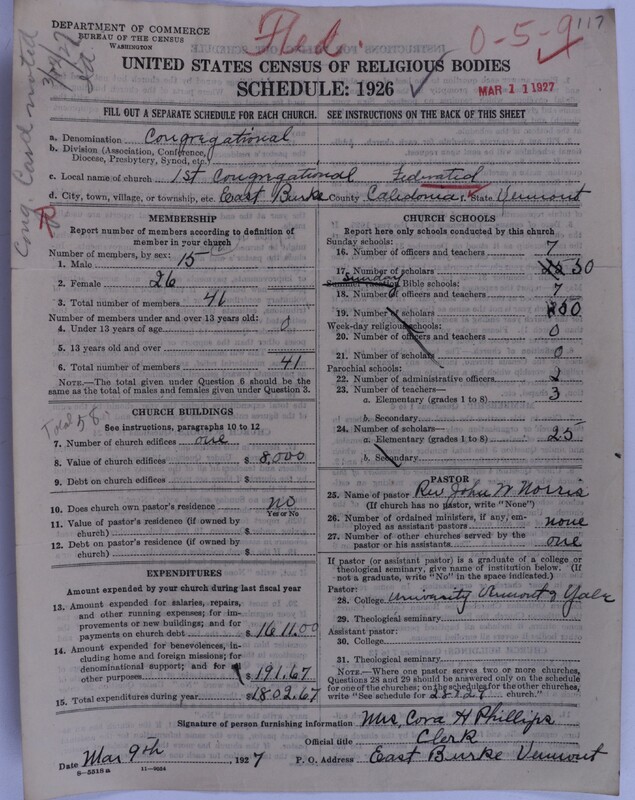 DEPARTMENT OF COMMERCE
BUREAU OF THE CENSUS
WASHINGTON
Fed.
0-5-9
117
UNITED STATES CENSUS OF RELIGIOUS BODIES
SCHEDULE: 1926
MAR 11 1927
Cong. Card noted
FILL OUT A SEPARATE SCHEDULE FOR EACH CHURCH. SEE INSTRUCTIONS ON THE BACK OF THIS SHEET
a. Denomination Congregational
b. Division (Association, Conference, Diocese, Presbytery, Synod, etc.)
c. Local name of church 1st Congregational Federated
d. City, town, village, or township, etc. East Burke County Caledonia State Vermont
MEMBERSHIP
Report number of members according to definition of member in your church
Number of members, by sex:
1. Male 15
2. Female 26
3. Total number of members 41
Number of members under and over 13 years old:
4. Under 13 years of age 0
5. 13 years old and over
6. Total number of members 41
NOTE.—The total given under Question 6 should be the same as the total of males and females given under Question 3.
Total 58
CHURCH BUILDINGS
See instructions, paragraphs 10 to 12
7. Number of church edifices one
8. Value of church edifices $ 8,000
9. Debt on church edifices $
10. Does church own pastor's residence no
Yes or No
11. Value of pastor's residence (if owned by church) $
12. Debt on pastor's residence (if owned by church) $
EXPENDITURES
Amount expended by your church during last fiscal year
13. Amount expended for salaries, repairs, and other running expenses; for improvements or new buildings; and for payments on church debt $ 1611.00
14. Amount expended for benevolences, including home and foreign missions; for denominational support; and for all other purposes $ 191.67
15. Total expenditures during year $ 1802.67
CHURCH SCHOOLS
Report here only schools conducted by this church
Sunday schools:
16. Number of officers and teachers 7
17. Number of scholars 50
Sunday
Summer Vacation Bible schools:
18. Number of officers and teachers 7
19. Number of scholars
Week-day religious schools:
20. Number of officers and teachers 0
21. Number of scholars 0
Parochial schools:
22. Number of administrative officers 2
23. Number of teachers—
a. Elementary (grades 1 to 8) 3
b. Secondary
24. Number of scholars—
a. Elementary (grades 1 to 8) 25
b. Secondary
PASTOR
25. Name of pastor Rev John W Norris
(If church has no pastor, write "None")
26. Number of ordained ministers, if any, employed as assistant pastors none
27. Number of other churches served by the pastor or his assistants one
If pastor (or assistant pastor) is a graduate of a college or theological seminary, give name of institution below. (If not a graduate, write "No" in the space indicated.)
Pastor:
28. College University Vermont & Yale
29. Theological seminary
Assistant pastor:
30. College
31. Theological seminary
NOTE.—Where one pastor serves two or more churches, Questions 28 and 29 should be answered only on the schedule for one of the churches; on the schedules for the other churches, write "See schedule for church."
Signature of person furnishing information Mrs. Cora H Phillips
Official title Clerk
Date Mar 9th, 1927 P. O. Address East Burke Vermont
8-5318a 11-9034